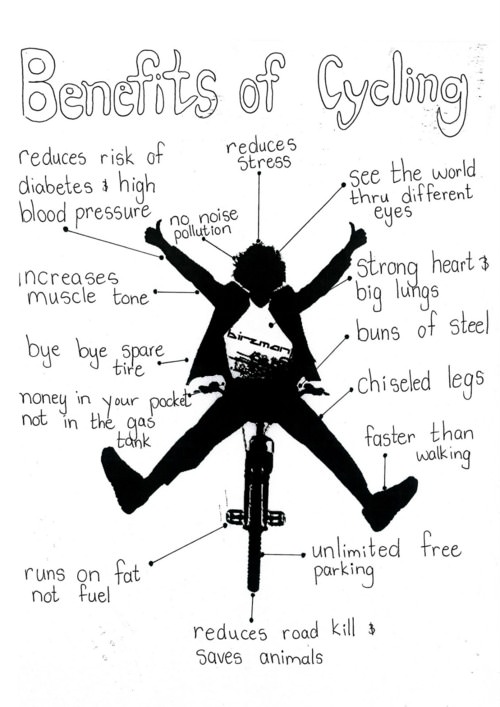 Benefits of Cycling
reduces risk of
diabetes & high
blood pressure
reduces
stress
no noise
pollution
see the world
thru different
eyes
increases
muscle tone
strong heart &
big lungs
birzman
bye bye spare
tire
buns of steel
money in your pocket
not in the gas
tank
chiseled legs
faster than
walking
runs on fat
not fuel
unlimited free
parking
reduces road kill &
saves animals